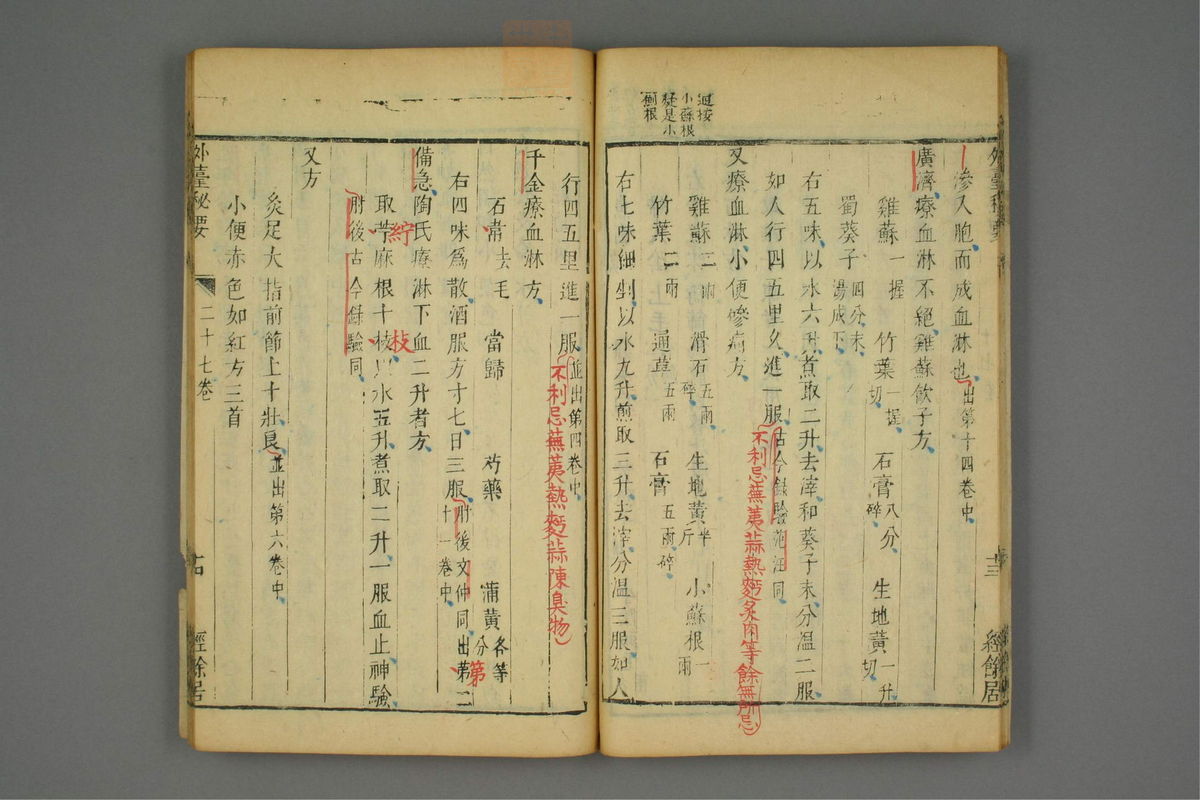 迴按
小蘇根
疑是小
薊根
滲入胞而成血淋也出第十四卷中
廣濟療血淋不絕雞蘇飲子方
雞蘇一握 竹葉一握切 石膏八分碎 生地黃一升切
蜀葵子四分末湯成下
右五味以水六升煮取二升去滓和葵子末分溫二服
如人行四五里久進一服古今錄驗范汪同
不利忌蕪荑蒜熱麵炙肉等餘無所忌
又療血淋小便慘痛方
雞蘇二兩 滑石五兩碎 生地黃半斤 小蘇根一兩
竹葉二兩 通草五兩 石膏五兩碎
右七味細剉以水九升煎取三升去滓分溫三服如人
外臺秘要 十三 經餘居
行四五里進一服並出第四卷中
不利忌蕪荑熱麵蒜陳臭物
千金療血淋方
石韋去毛 當歸 芍藥 蒲黃各等分
右四味為散酒服方寸七日三服肘後文仲同出第二十一卷中
第
備急陶氏療淋下血二升者方
取苧麻根十枚以水五升煮取二升一服血止神驗
紵
枝
肘後古今錄驗同
又方
灸足大指前節上十壯良並出第六卷中
小便赤色如紅方三首
外臺秘要 二十七卷 十四 經餘居